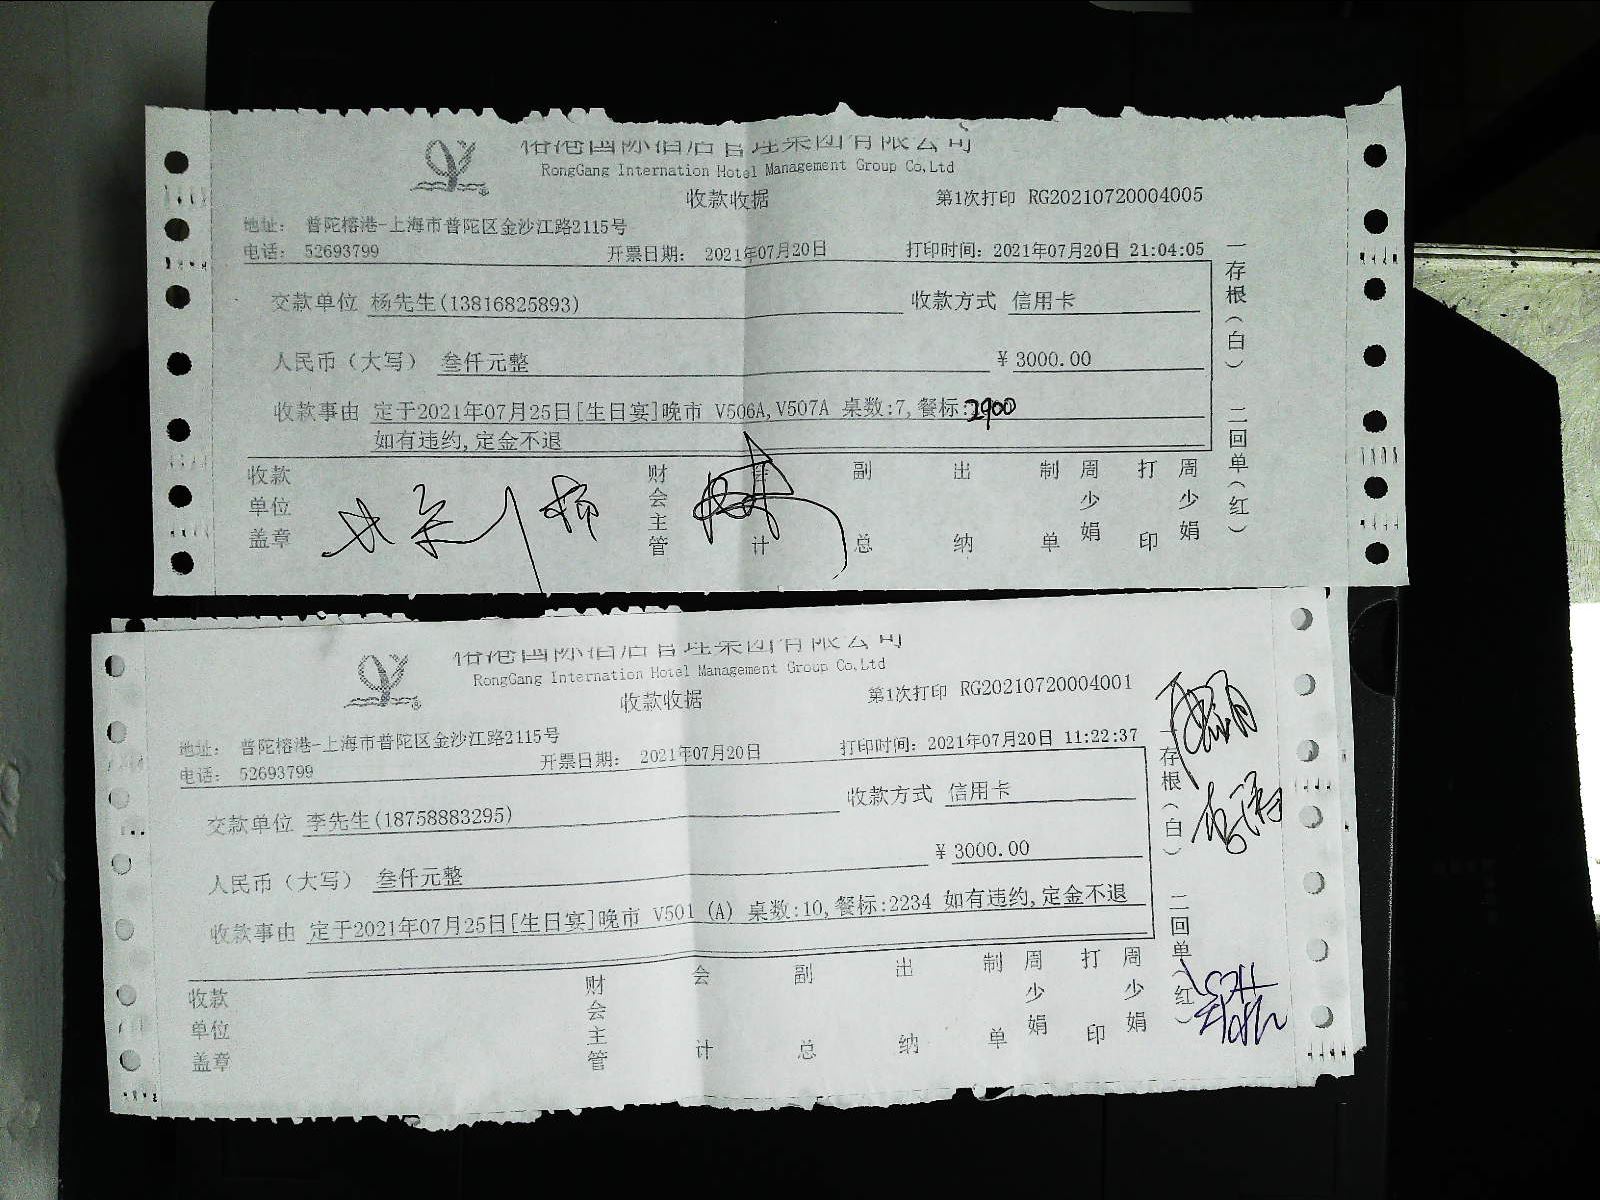 榕港国际酒店管理集团有限公司
RongGang Internation Hotel Management Group Co,Ltd
收款收据
第1次打印 RG20210720004005
地址: 普陀榕港-上海市普陀区金沙江路2115号
电话: 52693799 开票日期: 2021年07月20日 打印时间: 2021年07月20日 21:04:05
交款单位 杨先生(13816825893) 收款方式 信用卡
人民币(大写) 叁仟元整 ¥3000.00
收款事由 定于2021年07月25日[生日宴]晚市 V506A,V507A 桌数:7,餐标:2900
如有违约,定金不退
收款单位盖章 财会主管 会计 副总 出纳 制单 周少娟 打印 周少娟
一存根(白) 二回单(红)
榕港国际酒店管理集团有限公司
RongGang Internation Hotel Management Group Co,Ltd
收款收据
第1次打印 RG20210720004001
地址: 普陀榕港-上海市普陀区金沙江路2115号
电话: 52693799 开票日期: 2021年07月20日 打印时间: 2021年07月20日 11:22:37
交款单位 李先生(18758883295) 收款方式 信用卡
人民币(大写) 叁仟元整 ¥3000.00
收款事由 定于2021年07月25日[生日宴]晚市 V501 (A) 桌数:10,餐标:2234 如有违约,定金不退
收款单位盖章 财会主管 会计 副总 出纳 制单 周少娟 打印 周少娟
一存根(白) 二回单(红)